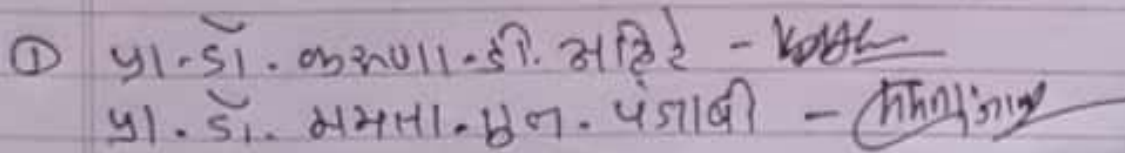 ① પ્રા. ડૉ. કરુણા. ડી. અહિરે -
પ્રા. ડૉ. મમતા. એન. પંજાબી -